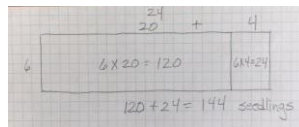 24
20 + 4
6 6x20=120 6x4=24
120+24=144 seedlings